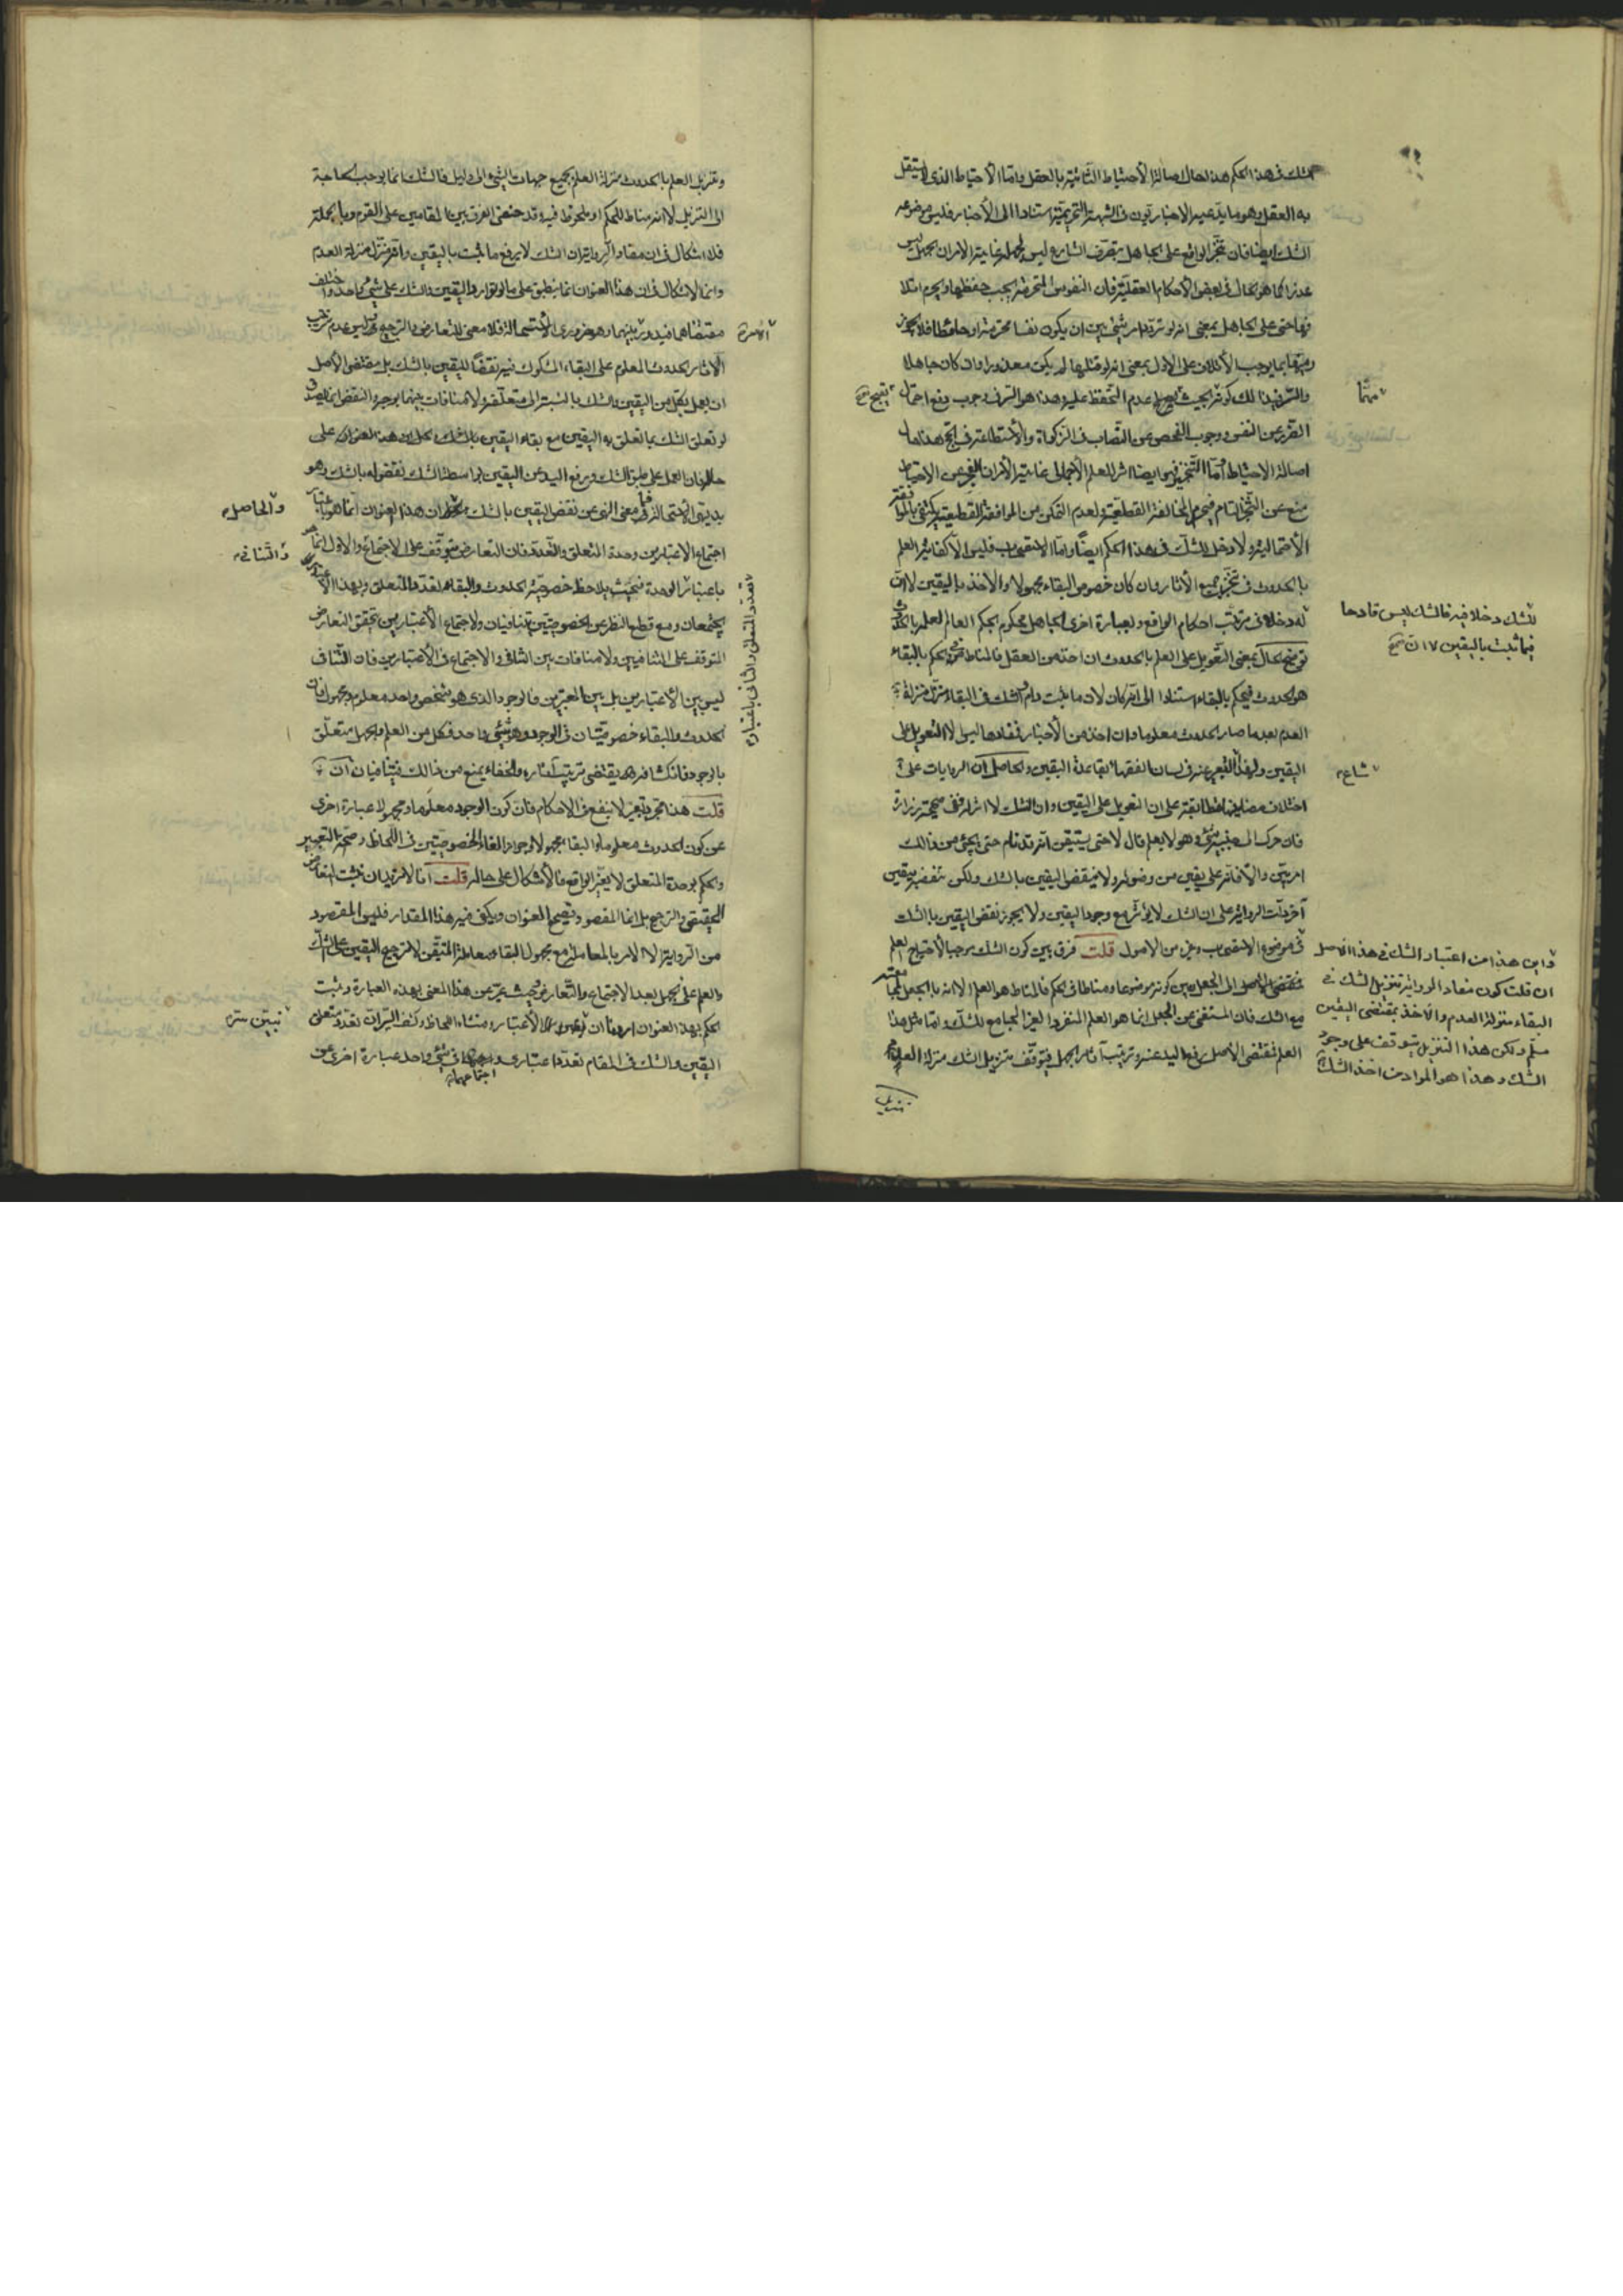 الشك فى هذا الحكم هذا حال اصالة الأحتياط الثابتة بالعقل واما الأحتياط الذى لا يستقل
به العقل وهو ما يدعيه الاخباريون فى الشبهة التحريمية استنادا الى الأخبار فليس موضوعه
الشك ايضا فان تنجز الواقع على الجاهل بتصرف الشارع ليس غاية الامر ان الجهل ليس
عذرا كما هو الحال فى بعض الأحكام العقلية فان النفوس المحترمة يجب حفظها ويحرم اتلا
فها حتى على الجاهل بمعنى انه لو تردد امر شئ بين ان يكون نفسا محترمة او حائطا فلا يجوز
رميها بما يوجب الأتلاف على الاول بمعنى انه لو قتلها لم يكن معذورا وان كان جاهلا
والسر فى ذلك كونه بحيث عدم التحفظ عليه وهذا هو السر فى وجوب دفع احتمال
الضرر عن النفس ووجوب الفحص عن النصاب فى الزكوة والأستطاعة فى الحج هذا حال
اصالة الاحتياط واما التخيير فهو ايضا اثر للعلم الأجمالى غاية الأمر ان العجز عن الاحتياط
منع عن التنجز التام فيحرم المخالفة القطعية ولعدم التمكن من الموافقة القطعية يكتفى بالموافقة
الأحتمالية ولا دخل للشك فى هذا الحكم ايضا واما الاستصحاب فليس الا كفاية العلم
بالحدوث فى تنجز جميع الأثار وان كان خصوص البقاء مجهولا والأخذ باليقين لا ان
له دخلا فى ترتب احكام الواقع وبعبارة اخرى الجاهل محكوم بحكم العالم لعلمه بالحدوث
توضيح الحال بمعنى التعويل على العلم بالحدوث ان اخذ من العقل فالمناط فى الحكم بالبقاء
هو الحدوث فيحكم بالبقاء استنادا الى انه كان لان ما يثبت دام والشك فى البقاء منزل منزلة
العدم بعد ما صار الحدوث معلوما وان اخذ من الأخبار فمفادها ليس الا التعويل على
اليقين ولهذا التعبير عنه فى لسان الفقهاء بقاعدة اليقين والحاصل ان الروايات على
اختلاف مضامينها مطابقة على ان التعويل على اليقين وان الشك لا اثر له ففى صحيحة زرارة
فان حرك الى جنبه شئ وهو لا يعلم قال لا حتى يستيقن انه قد نام حتى يجئ من ذالك
امر بين والا فانه على يقين من وضوئه ولا ينقض اليقين بالشك ولكن تنقضه بيقين
آخر دلت الرواية على ان الشك لا يؤثر مع وجود اليقين ولا يجوز نقض اليقين بالشك
فى موضوع الاستصحاب وغيره من الاصول قلت فرق بين كون الشك موجبا لأحتياج العلم
مقتضى الاصل الى الجعل وبين كونه موضوعا ومناطا فى الحكم فالمناط هو العلم الا انه بالجعل
مع الشك فان المستغنى عن الجعل انما هو العلم المنفرد الغير الجامع للشك واما مثل هذا
العلم فمقتضى الأصل رفع اليد عنه وترتيب آثار الجهل فيتوقف تنزيل الشك منزلة العلم
تنزيل
مهما
يقبح صح
للشك دخلا فيه فالشك ليس قادحا
فيما ثبت باليقين لا ان صح
شاع
واين هذا من اعتبار الشك فى هذا الأصل
ان قلت كون مفاد الرواية تنزيل الشك فى
البقاء منزلة العدم والأخذ بمقتضى اليقين
مسلم ولكن هذا التنزيل يتوقف على وجود
الشك وهذا هو المراد من اخذ الشك
وتنزيل العلم بالحدوث منزلة العلم بجميع جهات الشئ الى دليل فالشك انما يوجب الحاجة
الى التنزيل لا انه مناط للحكم او ملحوظ فيه وقد خفى الفرق بين المقامين على القوم وبالجملة
فلا اشكال فى ان مفاد الرواية ان الشك لا يرفع ما ثبت باليقين وانه منزل منزلة العدم
وانما الاشكال فى ان هذا العنوان انما ينطبق على ما لو توارد اليقين والشك على شئ واحد واختلف
مقتضاهما فيدور بينهما وهو ضرورى الأستحالة فلا معنى للتعارض والترجيح وليس عدم ترتيب
الاثار الحدوث المعلوم على البقاء المشكوك فيه نقضا لليقين بالشك بل مقتضى الأصل
ان يعمل بكل من اليقين والشك بالنسبة الى متعلقه ولا منافات بينهما بوجه والنقض انما يصدق
لو تعلق الشك بما تعلق به اليقين مع بقاء اليقين بالشك
حاله فان العمل على طبق الشك ورفع اليد عن اليقين بواسطة الشك نقض له بالشك وهو
بديهى الأستحالة فما معنى النهى عن نقض اليقين بالشك ان هذا العنوان انما هو باعتبار
اجتماع الاعتبارين وحدة المتعلق والتعدد فان التعارض يتوقف على الاجتماع والاول انما
باعتبار الوحدة فحيث يلاحظ خصوصية الحدوث والبقاء تعدد المتعلق وبهذا الاعتبار
يجتمعان ومع قطع النظر عن الخصوصيتين يتنافيان ولاجتماع الأعتبارين يتحقق التعارض
المتوقف على التنافيين ولا منافات بين التنافى والاجتماع فى الأعتبارين فان التنافى
ليس بين الأعتبارين بل بين المعتبرين فالوجود الذى هو شخص واحد معلوم ومجهول فان
الحدوث والبقاء خصوصيتان فى الوجود وهو شئ واحد وكل من العلم والجهل متعلق
بالوجود فانكشافه يقتضى ترتيب آثاره والخفاء يمنع من ذالك فيتنافيان ان
قلت هذا مجرد تعبير لا ينفع فى الاحكام فان كون الوجود معلوما ومجهولا عبارة اخرى
عن كون الحدوث معلوما والبقاء مجهولا والغاء الخصوصيتين فى اللحاظ وصحة التعبير
والحكم بوحدة المتعلق لا يغير الواقع فالأشكال على حاله قلت انا لا نريد ان نثبت التعارض
الحقيقى والترجيح بل انما المقصود تصحيح العنوان ويكفى فيه هذا المقدار فليس المقصود
من الرواية الا الامر بالمعاملة مع مجهول البقاء معاملة المتيقن لا ترجيح اليقين على الشك
والعلم على الجهل بعد الاجتماع والتعارض وحيث عبر عن هذا المعنى بهذه العبارة وثبت
الحكم بهذا العنوان اردنا ان الأعتبار ومنشاء اللحاظ وكشف السر ان تعدد متعلق
اليقين والشك فى المقام تعدد اعتبارى واجتماعهما فى شئ واحد عبارة اخرى عن
الأمر
والحاصل
والتنافى
تعدد المتعلق والثانى باعتبار
نبين سر